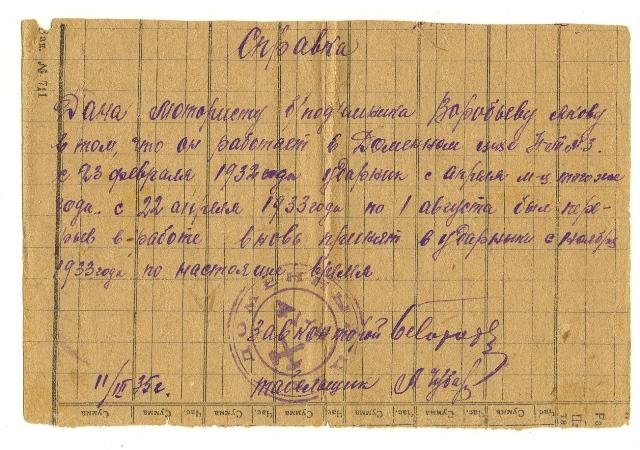 Справка
Дана мотористу Воробьеву Якову
в том, что он работает в Доменном цехе
с 23 февраля 1932 года ударник с апреля м-ц того же
года. с 22 апреля 1933 года по 1 августа был пере-
рыв в работе вновь принят в ударники с ноября
1933 года по настояще время.
Зав конторой
11/III 35 г. табельщик
Зак. № 711
Сумма Час. Сумма Час. Сумма Час. Сумма Час. Сумма Час. Сумма Час. Сумма